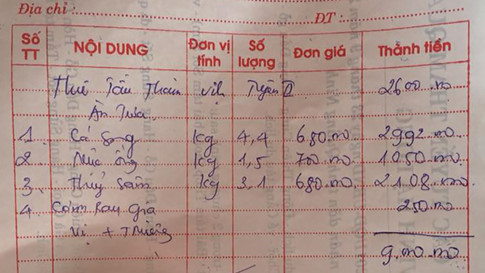 Địa chỉ : ĐT :
Số TT NỘI DUNG Đơn vị tính Số lượng Đơn giá Thành tiền
Thuê Tàu Thăm Vịh Tuyến II 2600.000
Ăn Trưa
1 Cá Song kg 4,4 680.000 2992.000
2 Mực ống kg 1,5 700.000 1050.000
3 kg 3,1 680.000 2108.000
4 Cơm Rau Gia 250.000
Vị +
9.000.000